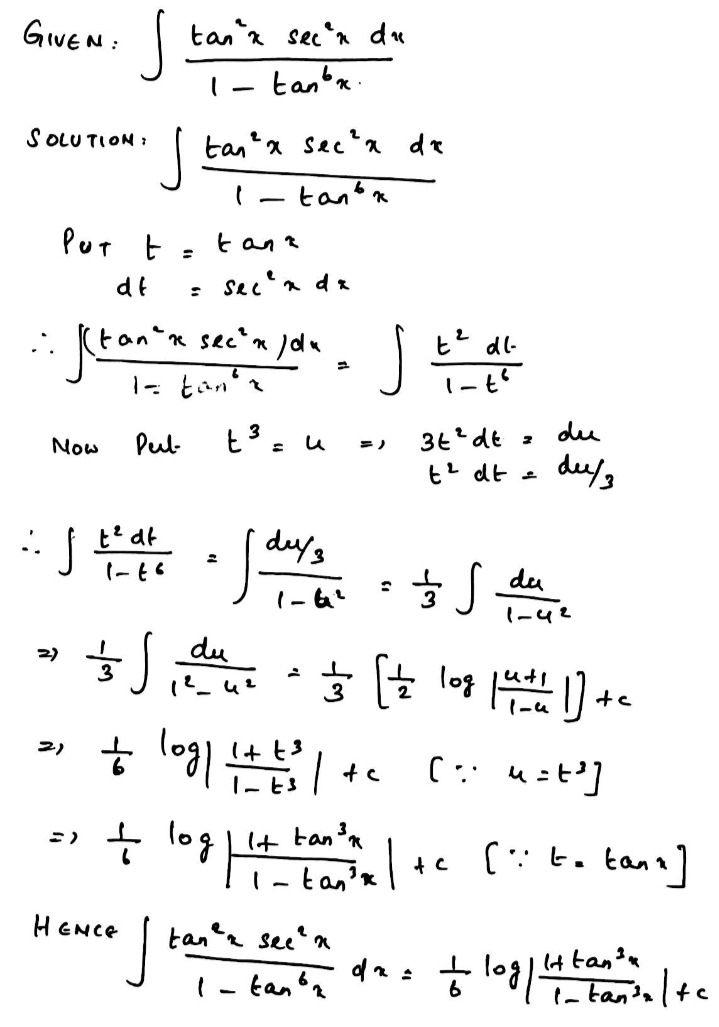 GIVEN: ∫ tan²x sec²x dx / 1 − tan⁶x.
SOLUTION: ∫ tan²x sec²x dx / 1 − tan⁶x
Put t = tan x
dt = sec²x dx
∴ ∫(tan²x sec²x)dx / 1 − tan⁶x = ∫ t² dt / 1 − t⁶
Now Put t³ = u => 3t² dt = du
t² dt = du/3
∴ ∫ t² dt / 1 − t⁶ = ∫ du/3 / 1 − u² = 1/3 ∫ du / 1 − u²
=> 1/3 ∫ du / 1² − u² = 1/3 [1/2 log |u+1 / 1−u|] + c
=> 1/6 log| 1 + t³ / 1 − t³ | + c [∵ u = t³]
=> 1/6 log | 1 + tan³x / 1 − tan³x | + c [∵ t = tan x]
HENCE ∫ tan²x sec²x / 1 − tan⁶x dx = 1/6 log | 1 + tan³x / 1 − tan³x | + c